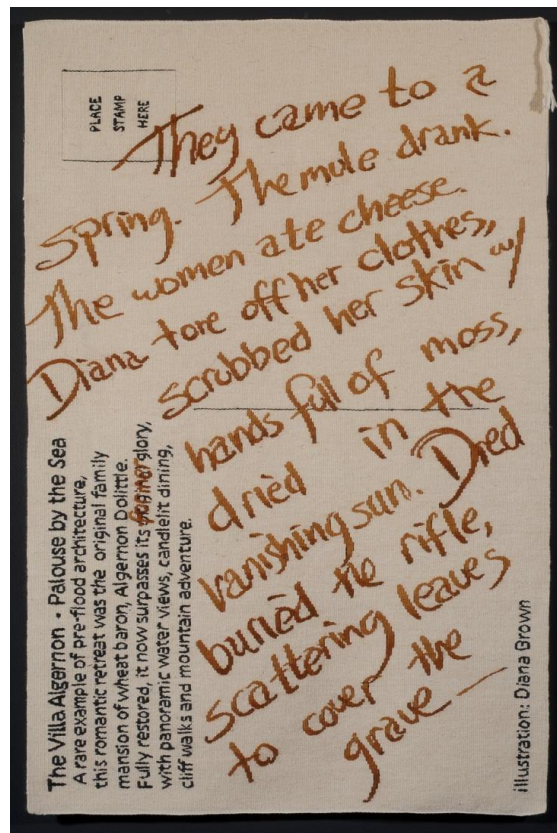 PLACE
STAMP
HERE
They came to a
spring. The mule drank.
The women ate cheese.
Diana tore off her clothes,
scrubbed her skin w/
hands full of moss,
dried in the
vanishing sun. Dred
buried the rifle,
scattering leaves
to cover the
grave —
The Villa Algernon • Palouse by the Sea
A rare example of pre-flood architecture,
this romantic retreat was the original family
mansion of wheat baron, Algernon Dolittle.
Fully restored, it now surpasses its former glory,
with panoramic water views, candlelit dining,
cliff walks and mountain adventure.
illustration: Diana Brown